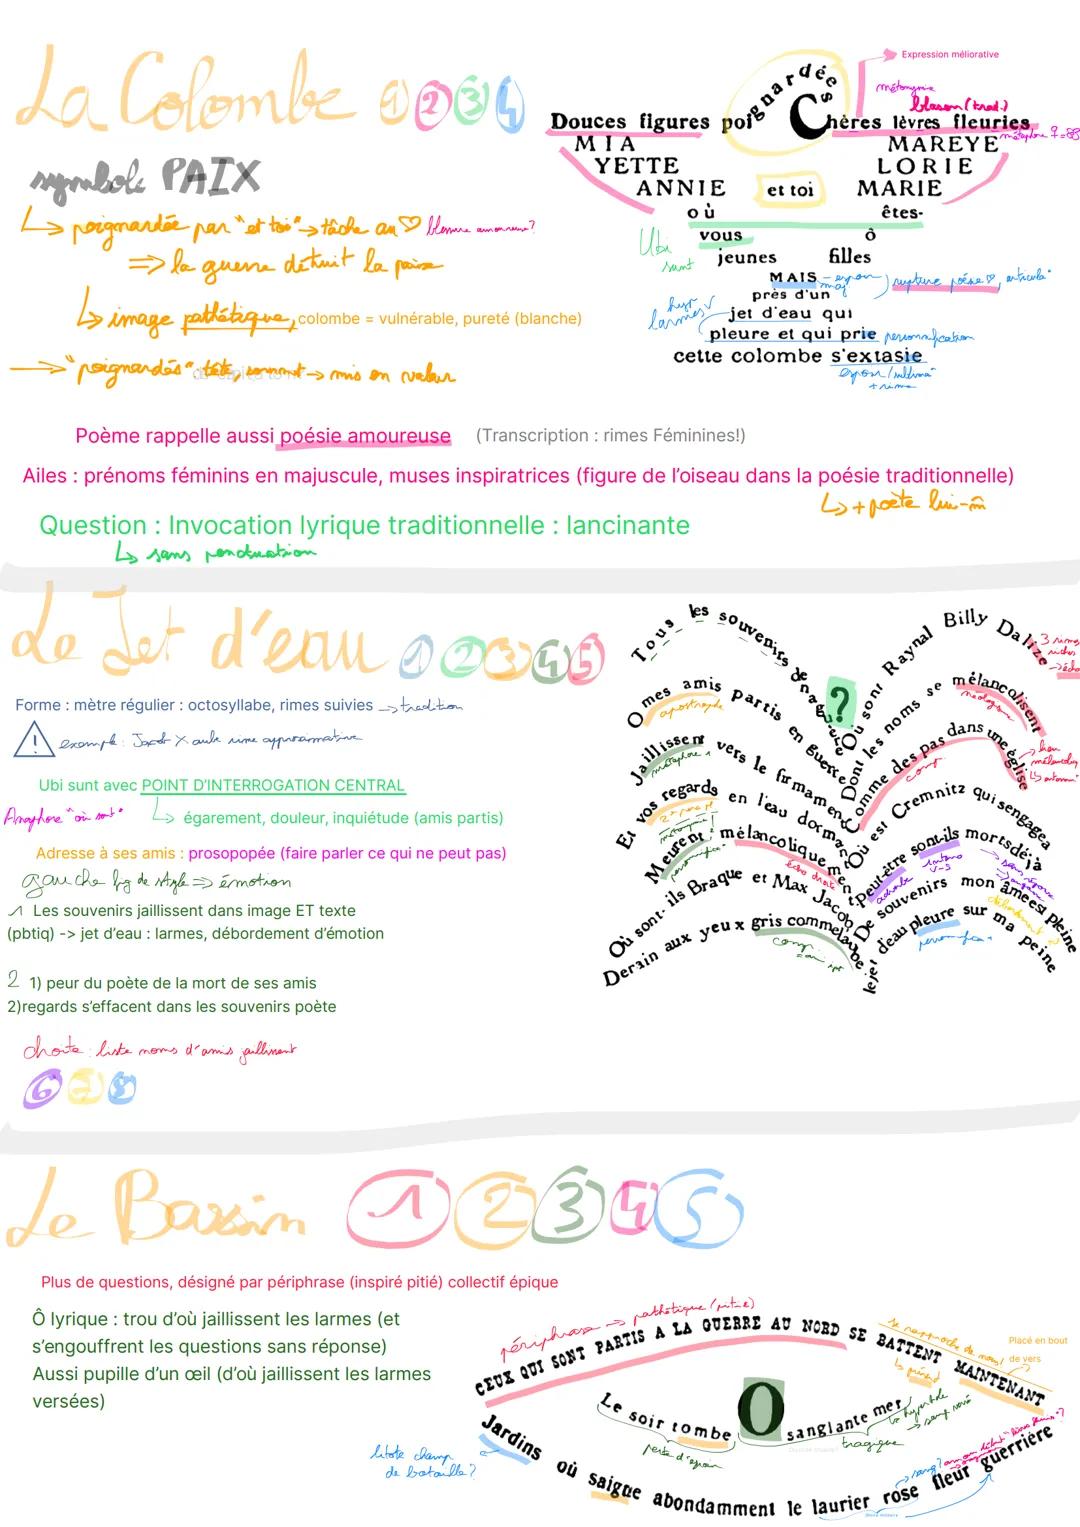 La Colombe 1 2 3 4
symbole PAIX
poignardée par "et toi" → tâche au ♡ blessure amoureuse?
⇒ la guerre détruit la paix
image pathétique, colombe = vulnérable, pureté (blanche)
→ "poignardés" tête, sommet → mis en valeur
Expression méliorative
métonymie
blason (trad.)
Douces figures poignardées Chères lèvres fleuries
métaphore ♀ =
MIA MAREYE
YETTE LORIE
ANNIE et toi MARIE
où êtes-
vous ô
jeunes filles
Ubi sunt
MAIS - espoir
maj
rupture poésie ♡,
près d'un
hyp larmes
jet d'eau qui
pleure et qui prie personnification
cette colombe s'extasie
espoir
+ rime
Poème rappelle aussi poésie amoureuse (Transcription : rimes Féminines!)
Ailes : prénoms féminins en majuscule, muses inspiratrices (figure de l'oiseau dans la poésie traditionnelle)
+ poète lui-m̂
Question : Invocation lyrique traditionnelle : lancinante
sans ponctuation
Le Jet d'eau 1 2 3 4 5
Forme : mètre régulier : octosyllabe, rimes suivies → tradition
! exemple : Jacob X aube rime approximative
Ubi sunt avec POINT D'INTERROGATION CENTRAL
Anaphore "où sont"
égarement, douleur, inquiétude (amis partis)
Adresse à ses amis : prosopopée (faire parler ce qui ne peut pas)
gauche fig de style ⇒ émotion
1 Les souvenirs jaillissent dans image ET texte
(pbtiq) -> jet d'eau : larmes, débordement d'émotion
2 1) peur du poète de la mort de ses amis
2)regards s'effacent dans les souvenirs poète
droite : liste noms d'amis jaillissent
6 7 8
Tous les souvenirs de naguère
O mes amis partis en guerre
apostrophe
Jaillissent vers le firmament
métaphore
Et vos regards en l'eau dormant
Meurent mélancoliquement
personnifica°
écho droite
Où sont-ils Braque et Max Jacob
Derain aux yeux gris comme l'aube
comp.
?
Où sont Raynal Billy Dalize
3 rimes riches
→ écho
Dont les noms se mélancolisent
néologisme
Comme des pas dans une église
comp.
lieu
Où est Cremnitz qui s engagea
Peut-être sont-ils morts déjà
adverbe
De souvenirs mon âme est pleine
débordement
le jet d'eau pleure sur ma peine
personnifica°
Le Bassin 1 2 3 4 5
Plus de questions, désigné par périphrase (inspiré pitié) collectif épique
Ô lyrique : trou d'où jaillissent les larmes (et
s'engouffrent les questions sans réponse)
Aussi pupille d'un œil (d'où jaillissent les larmes
versées)
périphrase → pathétique (pitié)
se rapproche de nous!
Placé en bout
de vers
CEUX QUI SONT PARTIS A LA GUERRE AU NORD SE BATTENT MAINTENANT
présent
Le soir tombe O sanglante mer
perte d'espoir
tragique
hyperbole
→ sang versé
litote champ
de bataille?
Jardins où saigne abondamment le laurier rose fleur guerrière